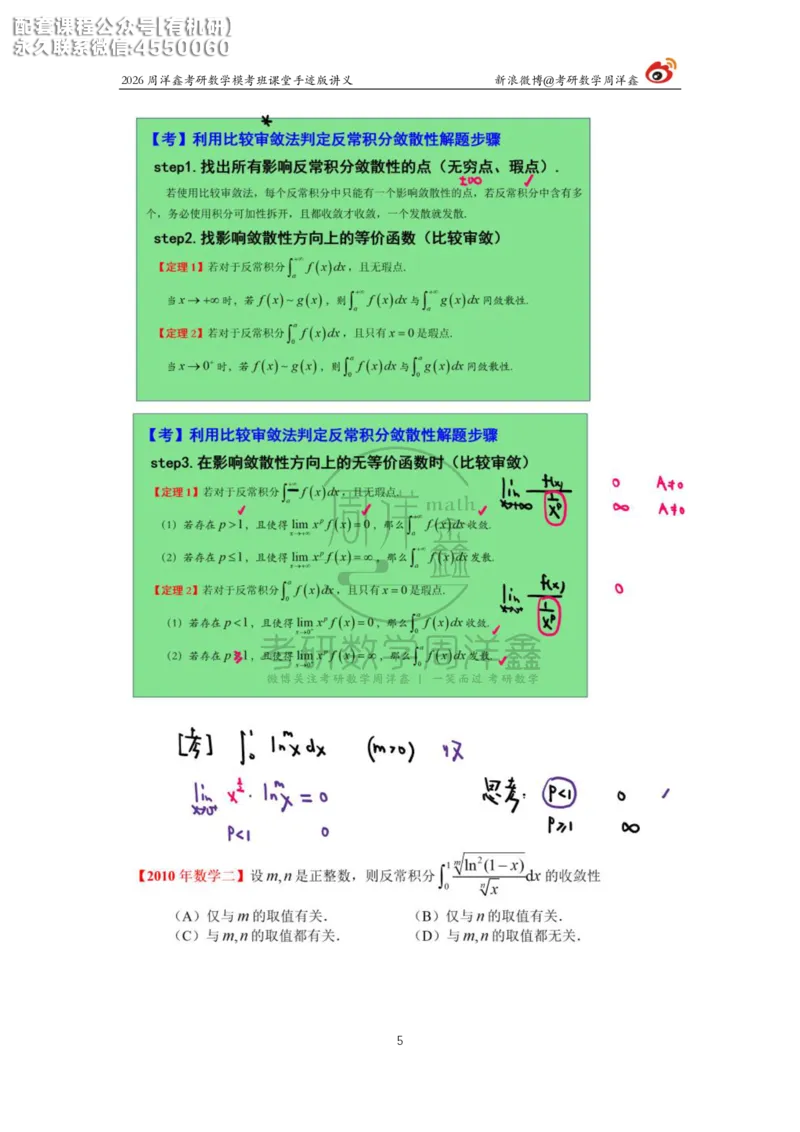 配套课程公众号[有机研)
永久联系微信:4550060
2026 周洋鑫考研数学模考班课堂手迹版讲义 新浪微博@考研数学周洋鑫
*
【考】利用比较审敛法判定反常积分敛散性解题步骤
step1.找出所有影响反常积分敛散性的点（无穷点、瑕点）.
±∞ ✓
若使用比较审敛法，每个反常积分中只能有一个影响敛散性的点，若反常积分中含有多
个，务必使用积分可加性拆开，且都收敛才收敛，一个发散就发散.
step2.找影响敛散性方向上的等价函数（比较审敛）
【定理1】若对于反常积分∫_a^{+∞} f(x)dx，且无瑕点.
当x→+∞时，若f(x)~g(x)，则∫_a^{+∞} f(x)dx与∫_a^{+∞} g(x)dx同敛散性.
【定理2】若对于反常积分∫_0^a f(x)dx，且只有x=0是瑕点.
当x→0⁺时，若f(x)~g(x)，则∫_0^a f(x)dx与∫_0^a g(x)dx同敛散性.
【考】利用比较审敛法判定反常积分敛散性解题步骤
step3.在影响敛散性方向上的无等价函数时（比较审敛）
【定理1】若对于反常积分∫_a^{+∞} f(x)dx，且无瑕点.
lim_{x→+∞} f(x)/(1/x^p) 0 A≠0
∞ A≠0
（1）若存在p>1，且使得lim_{x→+∞} x^p f(x)=0，那么∫_a^{+∞} f(x)dx收敛.
（2）若存在p≤1，且使得lim_{x→+∞} x^p f(x)=∞，那么∫_a^{+∞} f(x)dx发散.
【定理2】若对于反常积分∫_0^a f(x)dx，且只有x=0是瑕点.
lim_{x→0⁺} f(x)/(1/x^p) 0
（1）若存在p<1，且使得lim_{x→0⁺} x^p f(x)=0，那么∫_0^a f(x)dx收敛.
（2）若存在p≥1，且使得lim_{x→0⁺} x^p f(x)=∞，那么∫_0^a f(x)dx发散.
周洋鑫 math
考研数学周洋鑫
微博关注考研数学周洋鑫 | 一笑而过 考研数学
[考] ∫_0^1 ln^m x dx (m>0) 收
lim_{x→0⁺} x^{1/2}·ln^m x = 0 思考: p<1 0
p<1 0 p≥1 ∞
【2010 年数学二】设m,n是正整数，则反常积分∫_0^1 \sqrt[m]{ln²(1−x)}/\sqrt[n]{x} dx的收敛性
（A）仅与m的取值有关. （B）仅与n的取值有关.
（C）与m,n的取值都有关. （D）与m,n的取值都无关.
5